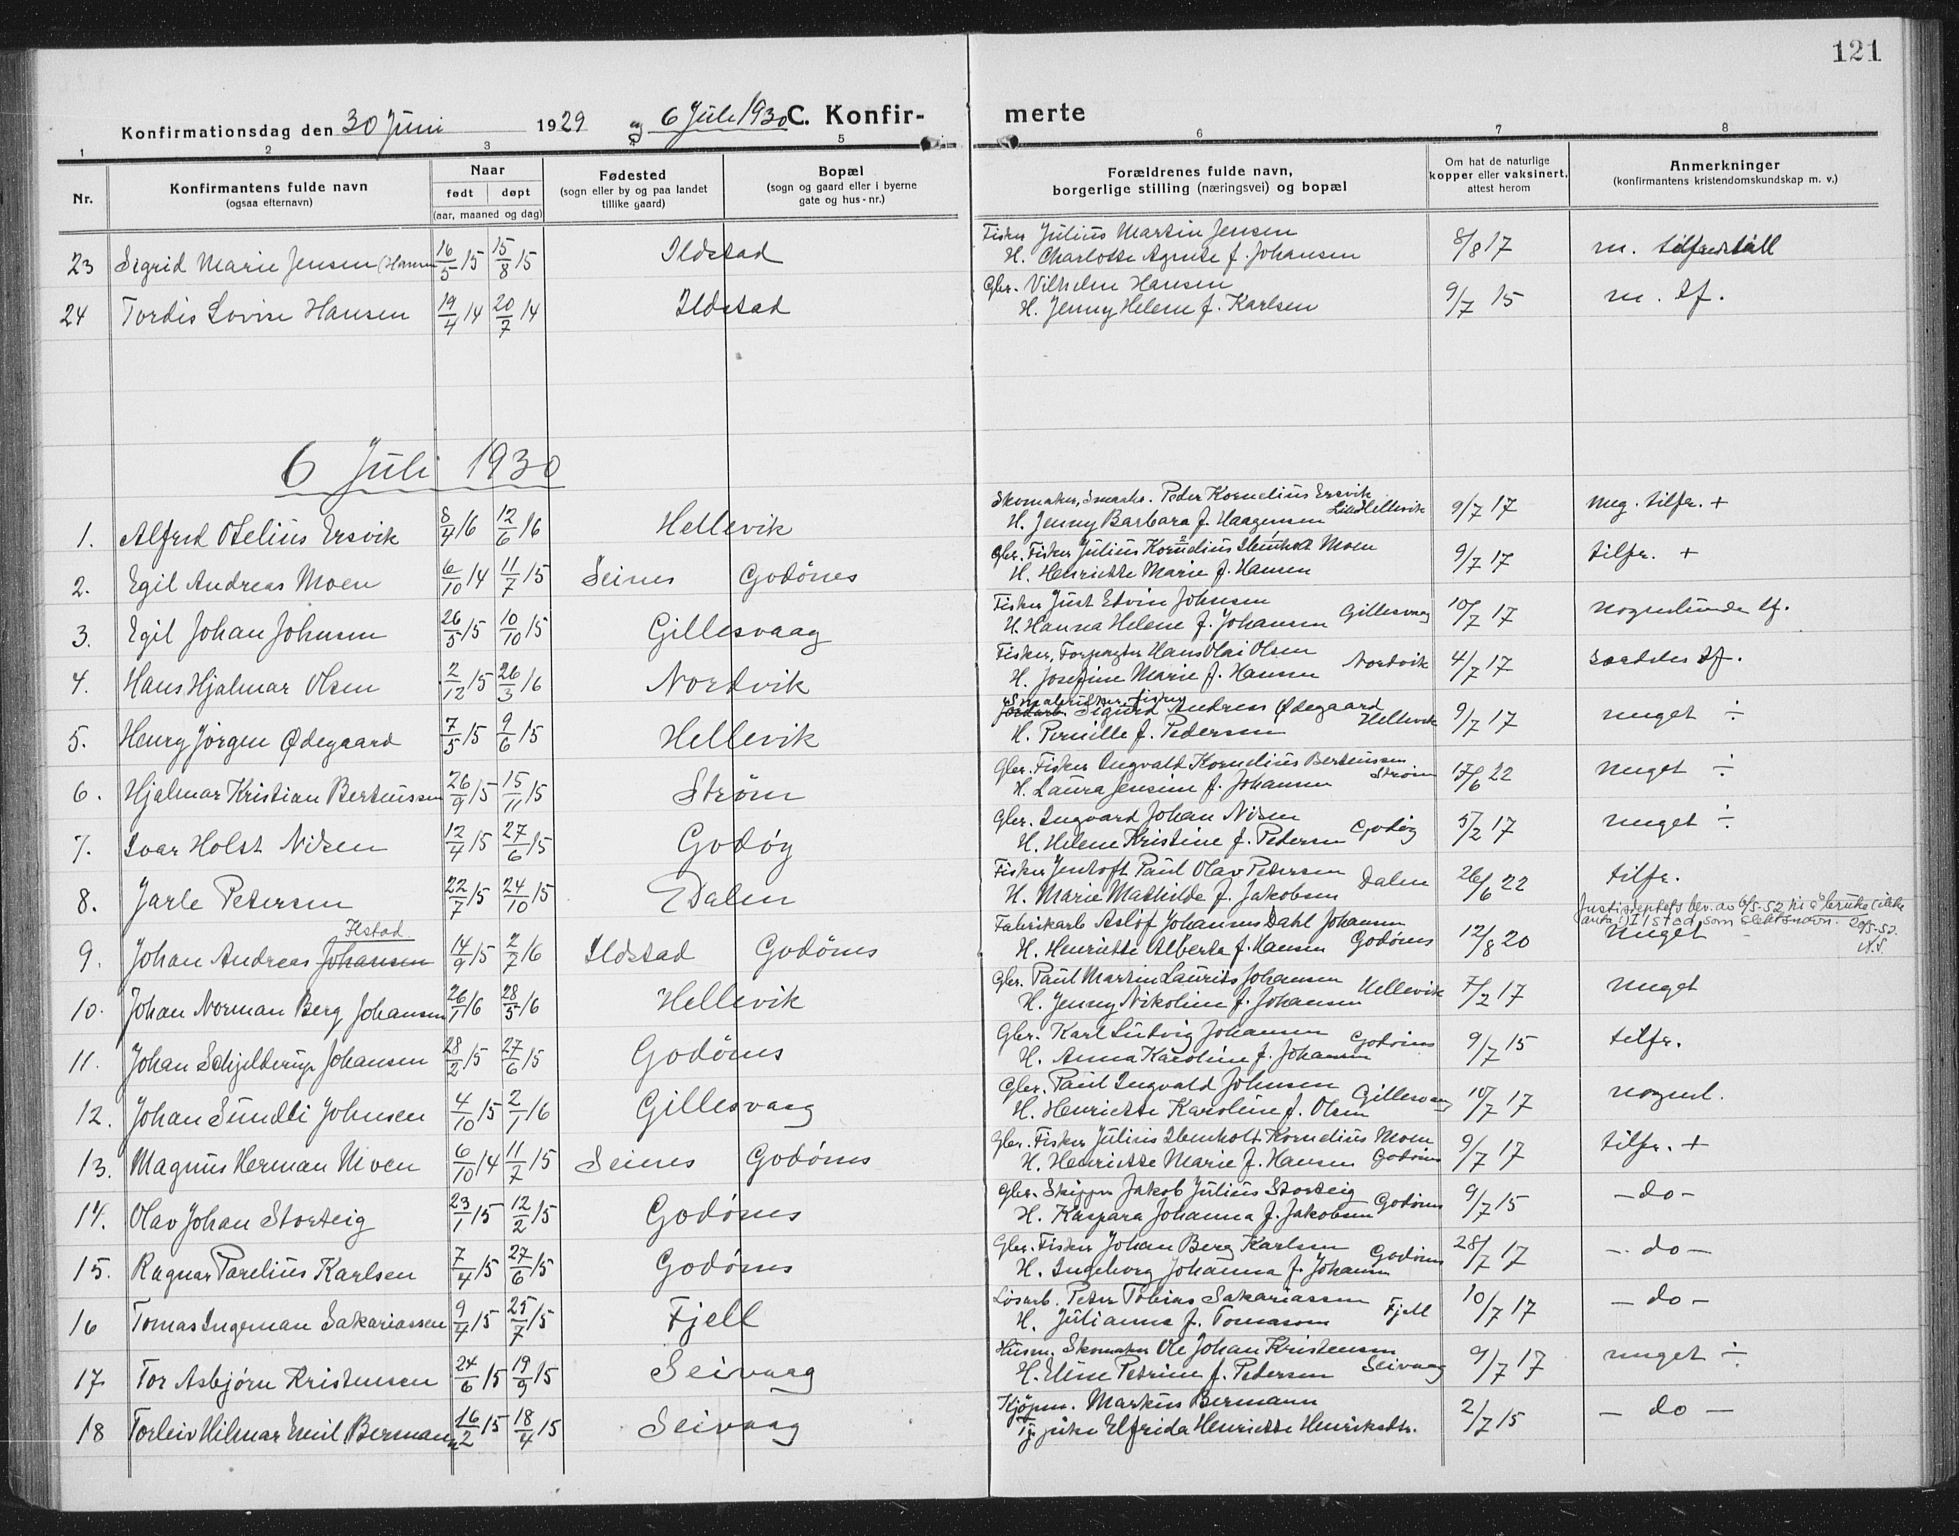 121
Konfirmationsdag den 30 Juni 1929 og 6 Juli 1930 C. Konfirmerte
1 2 3 4 5 6 7 8
Nr. Konfirmantens fulde navn (ogsaa efternavn) Naar født døpt (aar, maaned og dag) Fødested (sogn eller by og paa landet tillike gaard) Bopæl (sogn og gaard eller i byerne gate og hus-nr.) Forældrenes fulde navn, borgerlige stilling (næringsvei) og bopæl Om hat de naturlige kopper eller vaksinert, attest herom Anmerkninger (konfirmantens kristendomskundskap m. v.)
Fisker Julius Martin Jensen
23 Sigrid Marie Jensen (Hansen 16/5 15 15/8 15 Ildstad H. Charlotte Agnete f. Johansen 8/8 17 m. tilfredstill
Gbr. Vilhelm Hansen
24 Tordis Lovise Hansen 19/4 14 20/7 14 Ildstad H. Jenny Helene f. Karlsen 9/7 15 m. tf.
6 Juli 1930
Skomaker, Peder Kornelius Ersvik
1. Alfred Otelius Ersvik 8/4 16 12/6 16 Hellevik H. Jenny Barbara f. Haagensen Lille Hellevik 9/7 17 meg. tilfr. +
Gbr. Fisker Julius Kornelius Ibenholt Moen
2. Egil Andreas Moen 6/10 14 11/7 15 Seines Godønes H. Henriette Marie f. Hansen 9/7 17 tilfr. +
Fisker Just Edvin Johnsen
3. Egil Johan Johnsen 26/5 15 10/10 15 Gillesvaag H. Hanna Helene f. Johansen Gillesvaag 10/7 17 nogenlunde tf.
Fisker, Forpagter Hans Olai Olsen
4. Hans Hjalmar Olsen 2/12 15 26/3 16 Nordvik H. Josefine Marie f. Hansen Nordvik 4/7 17 særdeles tf.
Smabruker, fisker Sigurd Andreas Ødegaard
5. Henry Jørgen Ødegaard 7/5 15 9/6 15 Hellevik H. Pernille f. Pedersen Hellevik 9/7 17 meget ÷
Gbr. Fisker Ingvald Kornelius Berteussen
6. Hjalmar Kristian Berteussen 26/9 15 15/11 15 Strøm H. Laura Jensine f. Johansen Strøm 17/6 22 meget ÷
Gbr. Ingvard Johan Nisen
7. Ivar Holst Nisen 12/4 15 27/6 15 Godøy H. Helene Kristine f. Pedersen Godøy 5/2 17 meget ÷
Fisker Jentoft Paul Olav Petersen
8. Jarle Petersen 22/7 15 24/10 15 Dalen H. Marie Mathilde f. Jakobsen Dalen 26/6 22 tilfr.
Fabrikarb Asløf Johannes Dahl Johansen
9. Johan Andreas Johansen Ilstad 14/9 15 2/7 16 Ildstad Godønes H. Henriette Alberte f. Hansen Godønes 12/8 20 meget
Justisdeptets bev. av 6/5-52 til å bruke (ikke anta) Ilstad som slektsnavn. 20/5-52. N.S.
Gbr. Paul Martin Laurits Johansen
10. Johan Norman Berg Johansen 26/1 16 28/5 16 Hellevik H. Jenny Nikoline f. Johansen Hellevik 7/2 17 meget
Gbr. Karl Ludvig Johansen
11. Johan Schjelderup Johansen 28/2 15 27/6 15 Godønes H. Anna Karoline f. Johansen Godønes 9/7 15 tilfr.
Gbr. Paul Ingvald Johnsen
12. Johan Sundli Johnsen 4/10 15 2/1 16 Gillesvaag H. Henriette Karoline f. Olsen Gillesvaag 10/7 17 nogenl.
Gbr. Fisker Julius Ibenholt Kornelius Moen
13. Magnus Herman Moen 6/10 14 11/7 15 Seines Godønes H. Henriette Marie f. Hansen Godønes 9/7 17 tilfr. +
Gbr. Skipper Jakob Julius Storteig
14. Olav Johan Storteig 23/1 15 12/2 15 Godønes H. Kaspara Johanna f. Jakobsen Godønes 9/7 15 - do -
Gbr. Fisker Johan Berg Karlsen
15. Ragnar Parelius Karlsen 7/4 15 27/6 15 Godønes H. Ingeborg Johanna f. Johansen Godønes 28/7 17 - do -
Løsarb. Peter Tobias Sakariassen
16 Tomas Ingeman Sakariassen 9/4 15 25/7 15 Fjell H. Julianne f. Tomassen Fjell 10/7 17 - do -
Husm. Skomaker Ole Johan Kristensen
17 Tor Asbjørn Kristensen 24/6 15 19/9 15 Seivaag H. Eline Petrine f. Pedersen Seivaag 9/7 17 meget ÷
Kjøpm. Markus Bermann
18 Torleiv Hilmar Emil Bermann 16/2 15 18/4 15 Seivaag Pike Elfrida Henriette Henriksdtr. 2/7 15 - do -